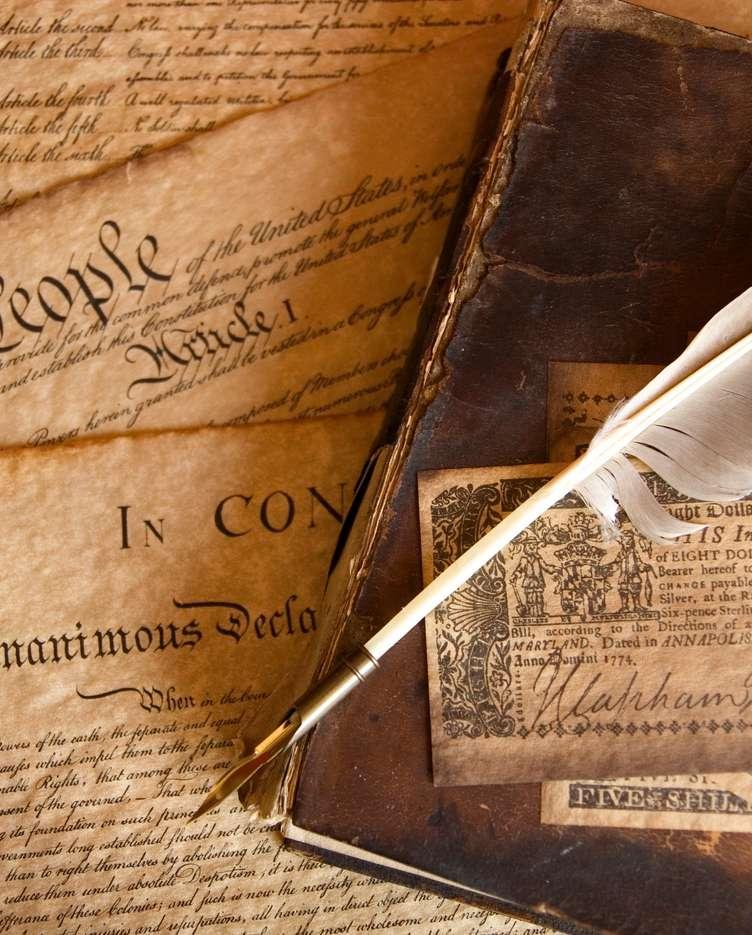 Article the second No law, varying the compensation for the services of the Senators and
Article the third. Congress shall make no law respecting an establishment of
assemble and to petition the Government for
Article the fourth A well regulated militia, be
Article the fifth No soldier shall
Article the sixth The
People of the United States, in orde
provide for the common defence, promote the general Welfare
and establish this Constitution for the United States of Am
Article. I
Powers herein granted shall be vested in a Congress
composed of Members
In CON
nanimous Decla
When in the Cour
owers of the earth, the separate and equal
auses which impel them to the separa
nable Rights, that among these are
nsent of the governed, — That whe
g its foundation on such principles and
vernments long established should not be c
than to right themselves by abolishing the f
reduce them under absolute Despotism, it is the
fferance of these Colonies; and such is now the necessity whi
injuries and usurpations, all having in direct object the
most wholesome and necess
ight Dolla
THIS In
of EIGHT DOL
Bearer hereof to
CHANGE payable
Silver, at the R
Six-pence Sterli
Bill, according to the Directions of a
MARYLAND. Dated in ANNAPOLIS
Anno Domini 1774.
FIVE SHIL